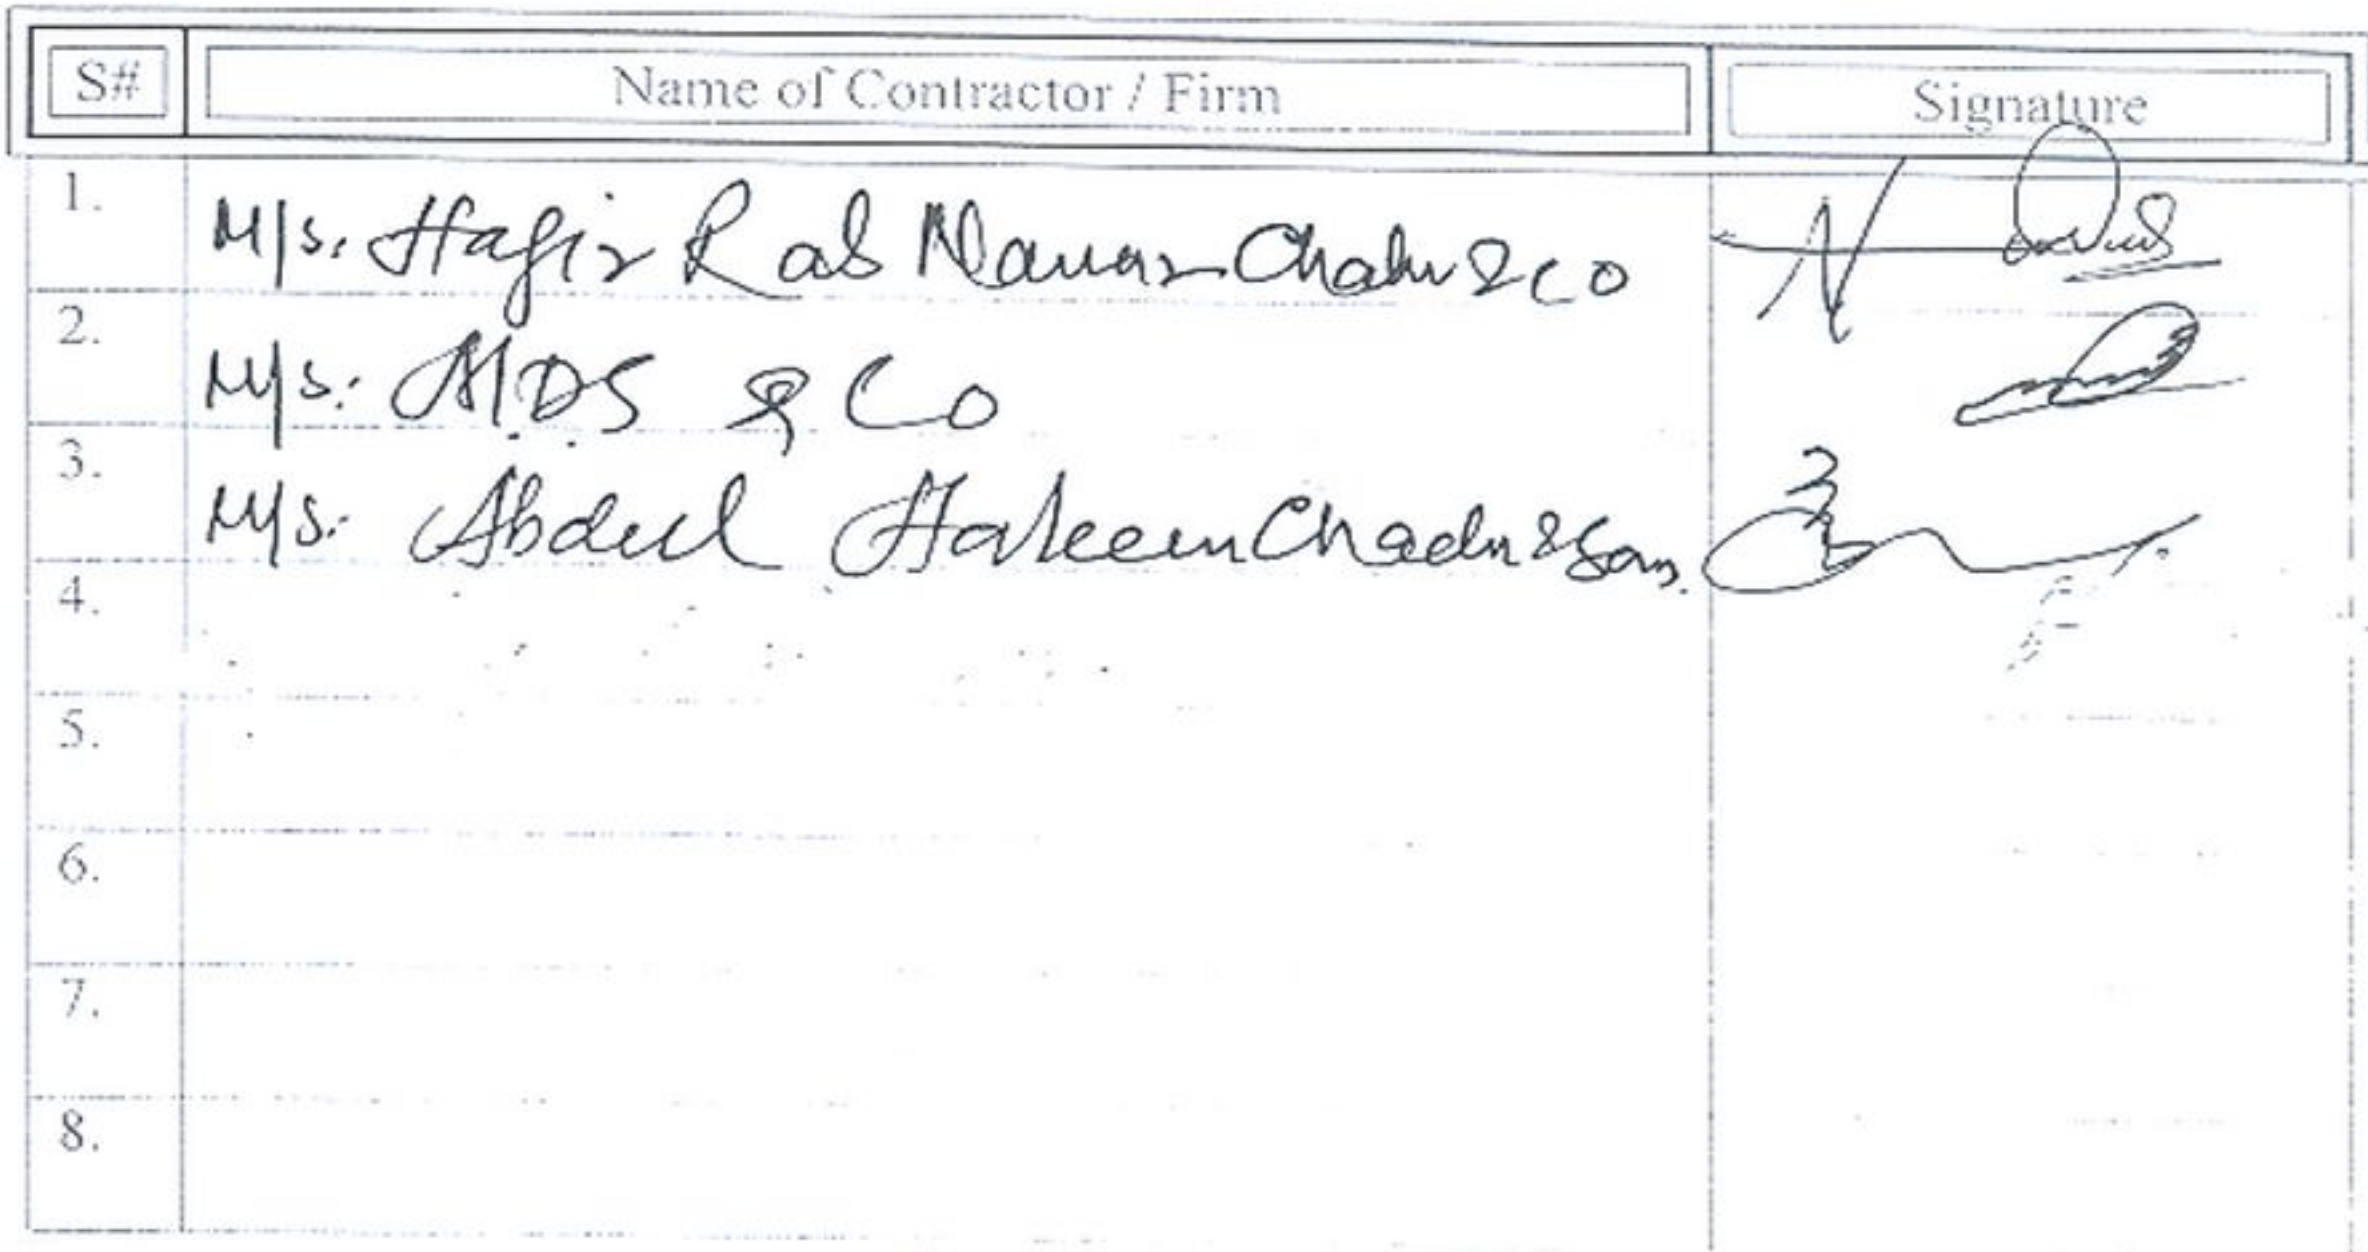 S# Name of Contractor / Firm Signature
1. M/s. Hafiz Rab Nawaz & Co
2. M/s. M.D.S & Co
3. M/s. Abdul Hakeem & Sons.
4.
5.
6.
7.
8.